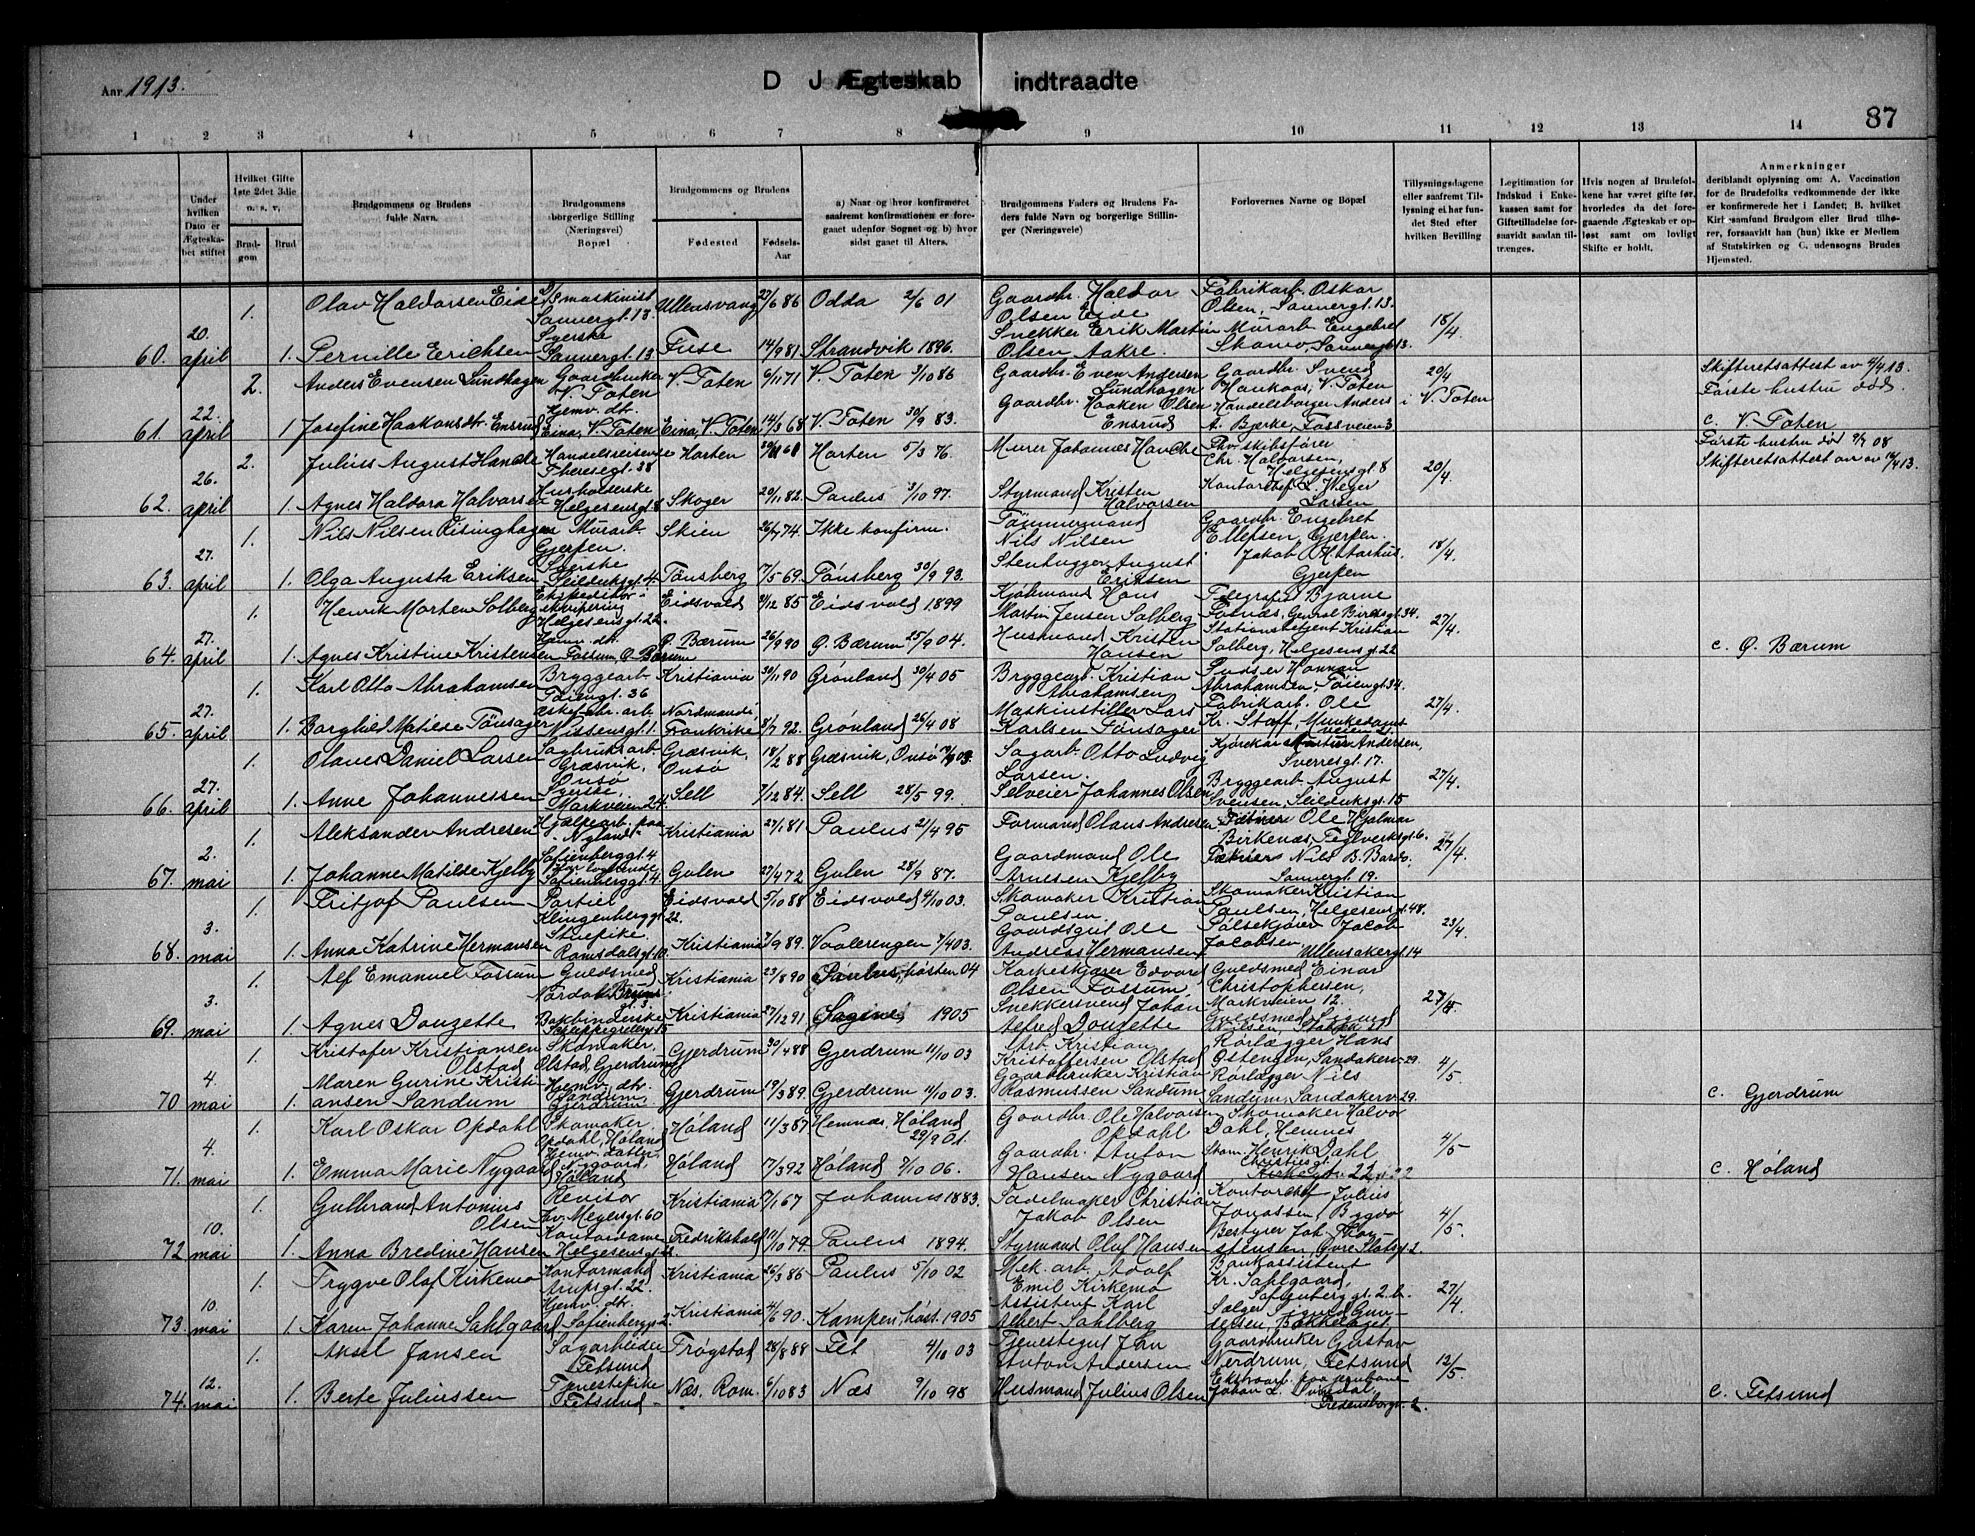 Aar 1913.
D J Ægteskab indtraadte
87
1 2 3 4 5 6 7 8 9 10 11 12 13 14
Under hvilken Dato er Ægteskabet stiftet
Hvilket Gifte 1ste 2det 3die o. s. v.
Brudgom
Brud
Brudgommens og Brudens fulde Navn.
Brudgommens borgerlige Stilling (Næringsvei) Bopæl
Brudgommens og Brudens
Fødested
Fødsels-Aar
a) Naar og hvor konfirmeret saafremt konfirmationen er foregaaet udenfor Sognet og b) hvor sidst gaaet til Alters.
Brudgommens Faders og Brudens Faders fulde Navn og borgerlige Stillinger (Næringsveie)
Forlovernes Navne og Bopæl
Tillysningsdagene eller saafremt Tillysning ei har fundet Sted efter hvilken Bevilling
Legitimation for Indskud i Enkekassen samt for Giftetilladelse forsaavidt saadan tiltrænges.
Hvis nogen af Brudefolkene har været gifte før, hvorledes da det foregaaende Ægteskab er opløst samt om lovligt Skifte er holdt.
Anmerkninger
deriblandt oplysning om: A. Vaccination for de Brudefolks vedkommende der ikke er konfirmerede her i Landet; B. hvilket Kirkesamfund Brudgom eller Brud tilhører, forsaavidt han (hun) ikke er Medlem af Statskirken og C. udensogns Brudes Hjemsted.
1. Olav Haldorsen Eide D/S maskinist Sannergt. 13. Ullensvang 27/6 86 Odda 2/6 01 Gaardbr. Haldor Olsen Eide Fabrikarb. Oskar Olsen, Sannergt. 13.
60. 20. april 1. Pernille Erichsen Syerske Sannergt. 13 Fuse 14/9 81 Strandvik 1896. Snekker Erik Martin Olsen Aakre. Murarb. Engebret Skomo, Sannergt 13. 18/4.
2. Anders Evensen Sundhagen Gaardbruker V. Toten V. Toten 6/11 71 V. Toten 3/10 86 Gaardbr. Even Andersen Sundhagen Gaardbr. Svend Haukaas, V. Toten 20/4 i V. Toten Skifteretsattest av 4/4 13. Første hustru død.
61. 22. april 1 Josefine Haakonsdtr. Ensrud Hjemv. dtr. Eina, V. Toten Eina, V. Toten 14/3 68 V. Toten 30/9 83. Gaardbr. Haaken Olsen Ensrud Handelsborger Anders A. Bjerke, Fossveien 3 c. V. Toten
2. Julius August Hande Handelsreisende Theresegt. 38 Horten Horten 5/3 76. Murer Johannes Hande Chr. Halvorsen, Helgesensgt. 8 Første hustru død 9/7 08 Skifteretsattest av
62. 26. april 1. Agnes Haldora Halvorsen Husholderske Helgesensgt. 8 Skoger 20/11 82. Paulus 3/10 97. Styrmand Kristen Halvorsen Kontorchef L. Weger Larsen 20/4.
1. Nils Nilsen Risinghagen Murarb. Gjerpen. Skien 26/4 74 Ikke konfirm. Tømmermand Nils Nilsen Gaardbr. Engebret Ellefsen, Gjerpen.
63. 27. april 1. Olga Augusta Eriksen Syerske Seilduksgt. 4. Tønsberg 17/5 69. Tønsberg 30/9 93. Stenhugger August Eriksen Jakob A. H. Aarhus. Gjerpen 18/4.
1. Henrik Morten Solberg Ekspeditør i ekvipering Helgesensgt. 22. Eidsvold 2/12 85 Eidsvold 1899 Kjøbmand Hans Martin Jensen Solberg Telegrafist Bjarne Fosnæs, General Birchsgt. 34.
64. 27. april 1. Agnes Kristine Kristensen Hjemv. dtr. Fossum, Ø. Bærum Ø. Bærum 26/9 90 Ø. Bærum 25/9 04. Husmand Kristen Hansen Stationsbetjent Kristian Solberg, Helgesensgt. 22 27/4. c. Ø. Bærum
1. Karl Otto Abrahamsen Bryggearb. Tøiengt. 36 Kristiania 30/11 90 Grønland 30/4 05 Bryggearb. Kristian Abrahamsen Abrahamsen, Tøiengt 34.
65. 27. april 1. Borghild Matilde Tønsager Æskefabr. arb. Nissensgt. 1. Normandi Frankrike 8/7 92. Grønland 26/4 08 Maskinstiller Lars Karlsen Tønsager Fabrikarb. Ole Kr. Staff, Munkedamsveien 21. 27/4.
1. Olaves Daniel Larsen Sagbruksarb. Græsvik, Onsø Græsvik, Onsø 18/2 88 Græsvik, Onsø Sagarb. Otto Ludvig Larsen. Kjørekar Andersen, Sverresgt. 17.
66. 27. april 1. Anne Johannessen Syerske, Markveien 24. Sell 7/12 84. Sell 28/5 99. Selveier Johannes Olsen Bryggearb. August Svensen, Seilduksgt. 15 27/4.
1. Aleksander Andresen Hjælpearb. paa "Nyland" Sofienberggt. 4 Kristiania 27/1 81 Paulus 21/4 95 Formand Olaus Andresen Ole Hjalmar Birkenæs, Teglverksgt. 6.
67. 2. mai 1. Johanne Matilde Kjelby Sofienberggt. 4. Gulen 27/4 72 Gulen 28/9 87. Gaardmand Ole Arnesen Kjelby Nils B. Bardo. Sannergt. 19. 27/4.
1. Fritjof Paulsen Portier Klingenberggt. Eidsvold 5/10 88 Eidsvold 4/10 03. Skomaker Kristian Paulsen. Skomaker Kristian Paulsen, Helgesensgt. 48.
68. 3. mai 1. Anna Katrine Hermansen Stuepike Romsdalsgt. 10. Kristiania 7/9 89. Vaalerengen 7/4 03. Gaardsgut Ole Andreas Hermansen Pølsekjører Jacob Jacobsen, Ullensakergt. 14 23/4.
1. Alf Emanuel Fossum Guldsmed Nordal Brunsgt. Kristiania 23/8 90 Paulus, høsten 04 Korkeskjærer Edvard Olsen Fossum Guldsmed Einar Christophersen, Markveien 12.
69. 3. mai 1. Agnes Donzette Bokbinderske Schleppegrellsgt. 15 Kristiania 27/12 91 Sagene 1905 Snekkersvend Johan Alfred Donzette Guldsmed Sigurd Nilsen,
1. Kristofer Kristiansen Olstad Skomaker, Olstad, Gjerdrum Gjerdrum 30/4 88 Gjerdrum 11/10 03 Arb. Kristian Kristoffersen Olstad Rørlægger Hans Østengen, Sandakerv. 29.
70 4. mai 1. Maren Gurine Kristiansen Sandum Hjemv. dtr. Sandum, Gjerdrum Gjerdrum 19/3 89. Gjerdrum 11/10 03. Gaardbruker Kristian Rasmussen Sandum Rørlægger Nils Sandum, Sandakerv. 29. 4/5. c. Gjerdrum
1. Karl Oskar Opdahl Skomaker. Opdahl, Høland Høland 11/3 87 Hemnæs, Høland 29/9 01. Gaardbr. Ole Halvorsen Opdahl Skomaker Halvor Dahl, Hemnes
71. 4. mai 1. Emma Marie Nygaard Hjemv. datter Nygaard, Høland Høland 17/3 92 Høland 7/10 06. Gaardbr. Anton Hansen Nygaard Skom. Henrik Dahl 4/5 c. Høland
1. Gulbrand Antonius Olsen Revisor Tv. Meyersgt. 60 Kristiania 7/1 67 Johannes 1883. Sadelmaker Christian Jakob Olsen Kontorchef Julius Jonassen, Bygdø
72 10. mai 1. Anna Bredine Hansen Kontordame Helgesensgt. Fredrikshald 11/10 79. Paulus 1894. Styrmand Oluf Hansen Bestyrer Joh. Øvre Slotsg. 2. 4/5.
1. Trygve Olaf Kirkemo Kontormand Arupsgt. 22. Kristiania 26/3 86 Paulus 5/10 02 Mek. arb. Adolf Emil Kirkemo Bankassistent Kr. Sahlgaard, Sofienberggt. 2. b.
73. 10. mai 1. Karen Johanne Sahlgaard Hjemv. dtr. Sofienberggt. 2 Kristiania 4/6 90. Kampen, høst. 1905 Assistent Karl Albert Sahlberg Sælger Sigurd Gundersen, Bækkelaget. 27/4.
1. Aksel Jansen Sagarbeider Fetsund Trøgstad 28/8 88 Fet 4/10 03 Tjenestegut Jan Anton Andersen Gaardbruker Gustav Nerdrum, Fetsund
74. 12. mai 1. Berte Juliussen Tjenestepike Fetsund Næs, Rom. 6/10 83 Næs 9/10 98 Husmand Julius Olsen Ekstraarb. paa Johan L. Fredensborgv. 2. 12/5. c. Fetsund